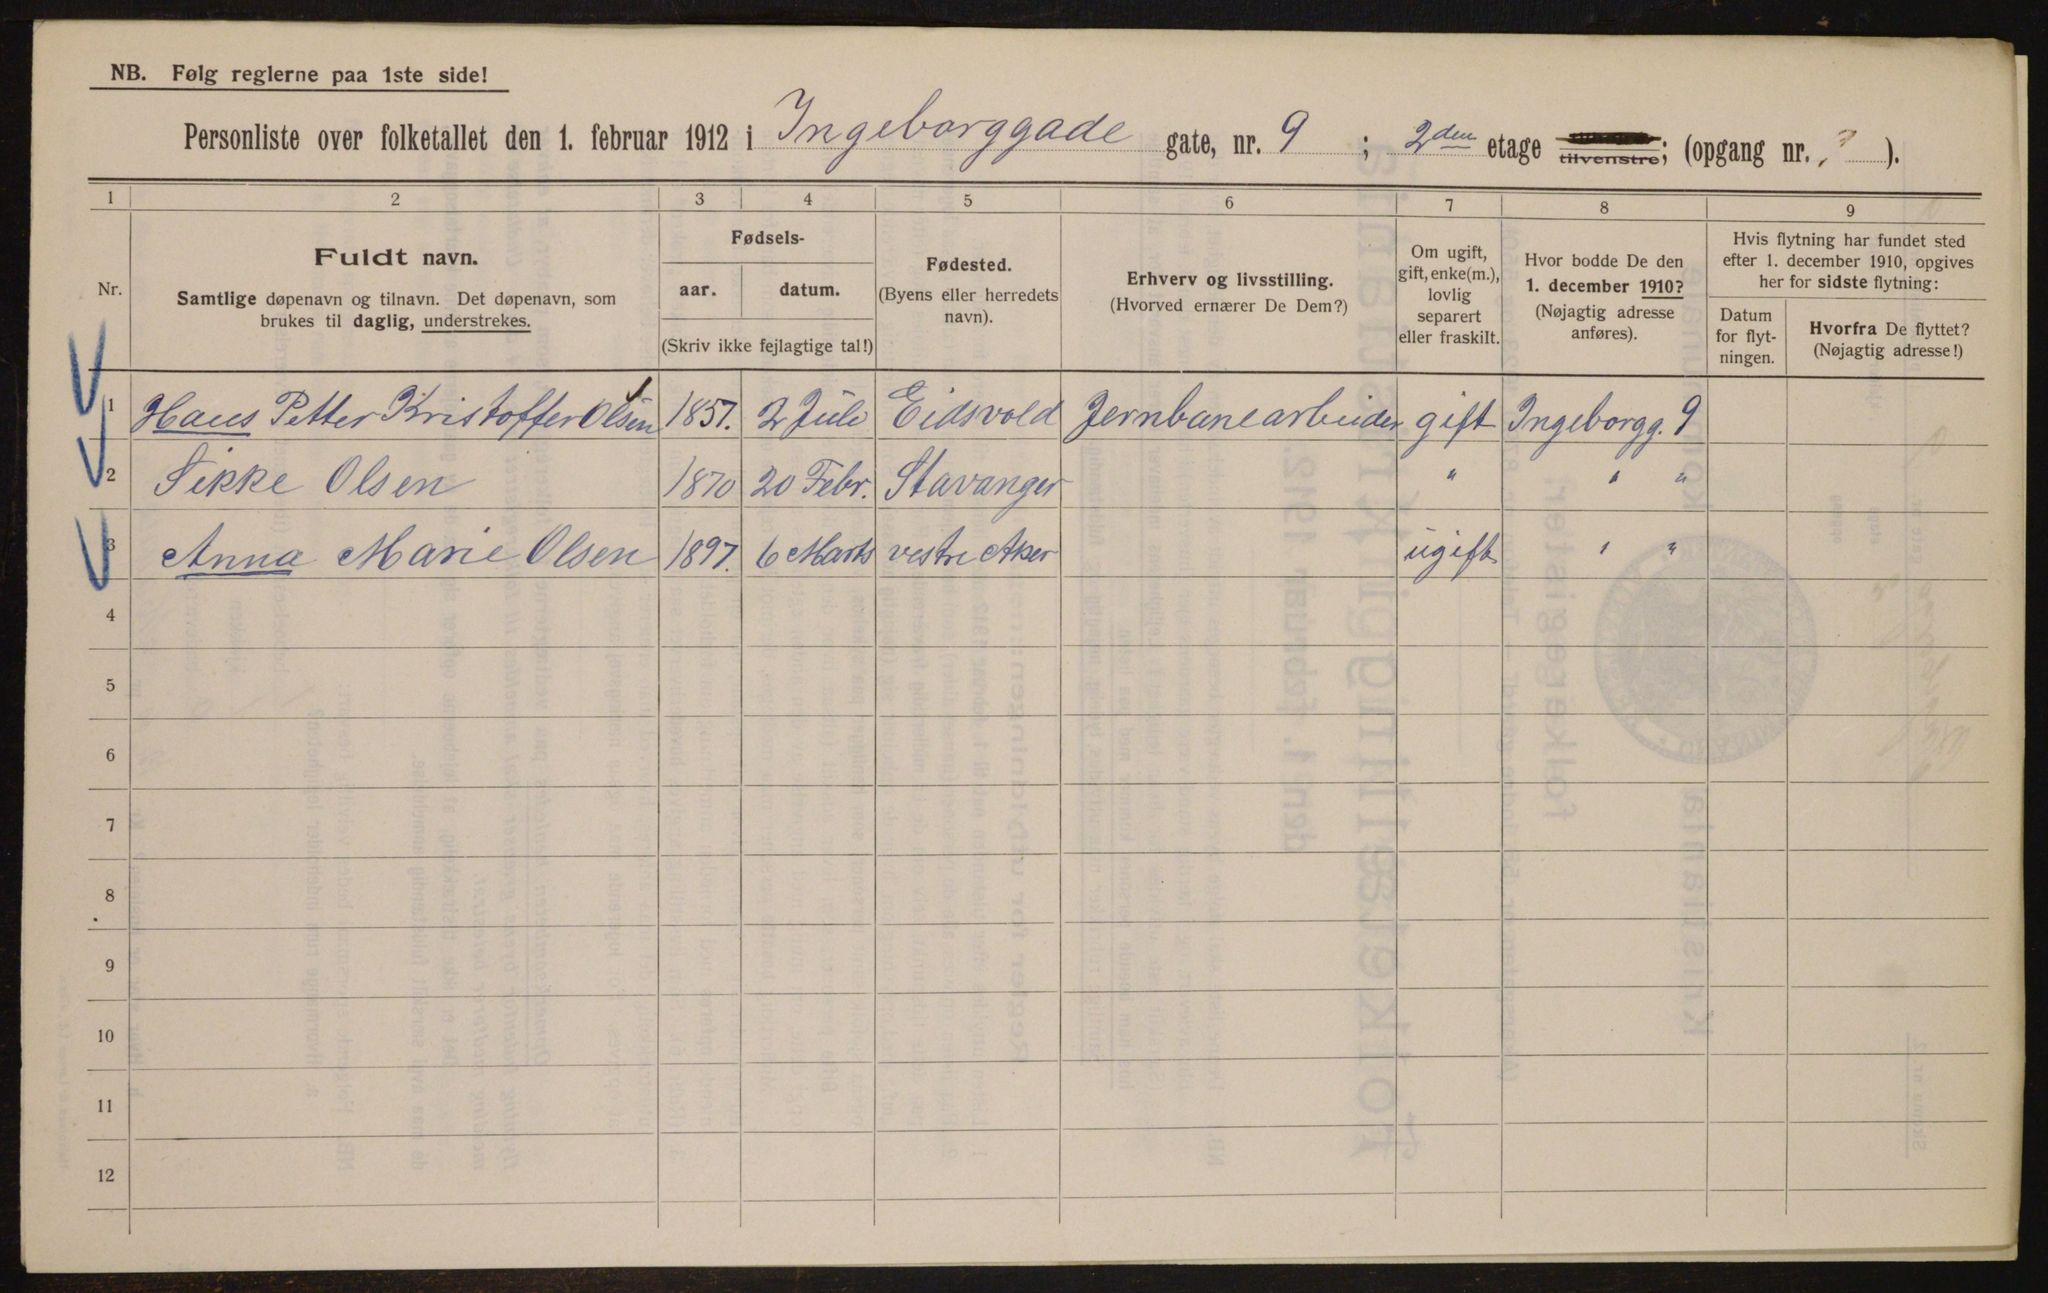 NB. Følg reglerne paa 1ste side!
Personliste over folketallet den 1. februar 1912 i Ingeborggade gate, nr. 9 ; 2den etage tilvenstre; (opgang nr. ).
1 2 3 4 5 6 7 8 9
Nr.
Fuldt navn.
Samtlige døpenavn og tilnavn. Det døpenavn, som
brukes til daglig, understrekes.
Fødsels-
aar. datum.
(Skriv ikke fejlagtige tal!)
Fødested.
(Byens eller herredets
navn).
Erhverv og livsstilling.
(Hvorved ernærer De Dem?)
Om ugift,
gift, enke(m.),
lovlig
separert
eller fraskilt.
Hvor bodde De den
1. december 1910?
(Nøjagtig adresse
anføres).
Hvis flytning har fundet sted
efter 1. december 1910, opgives
her for sidste flytning:
Datum
for flyt-
ningen.
Hvorfra De flyttet?
(Nøjagtig adresse!)
1 Hans Petter Kristoffer Olsen 1857. 2 Juli Eidsvold Jernbanearbeider gift Ingeborgg. 9
2 Sikke Olsen 1870 20 Febr. Stavanger " " "
3 Anna Marie Olsen 1897. 6 Marts vestre Aker ugift " "
4
5
6
7
8
9
10
11
12